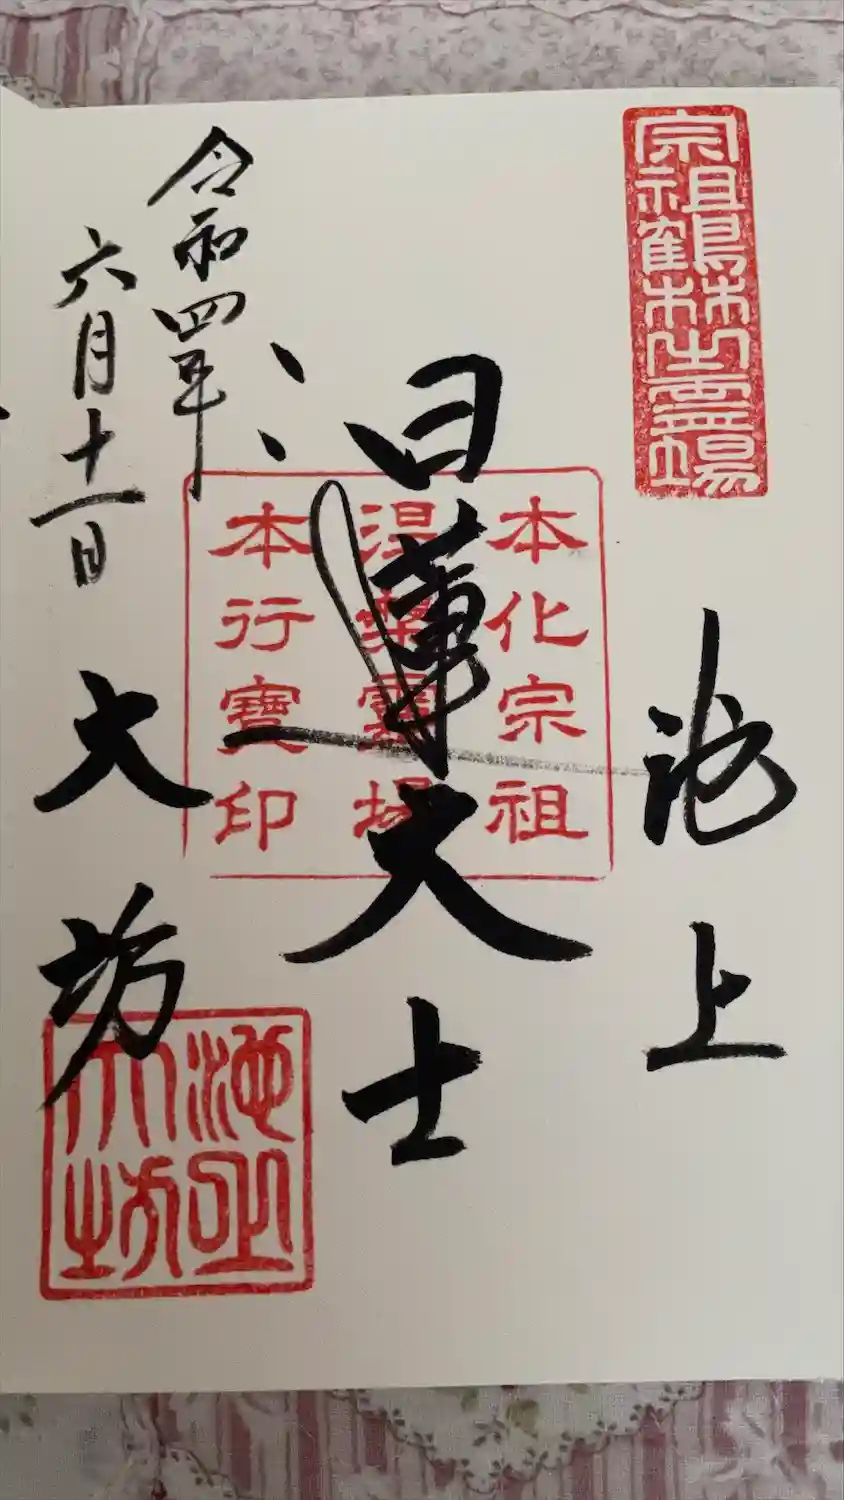 宗祖鶴林之霊場
池上
日蓮大士
本化宗祖
涅槃靈場
本行寶印
令和四年
六月十一日
大坊
池
大坊